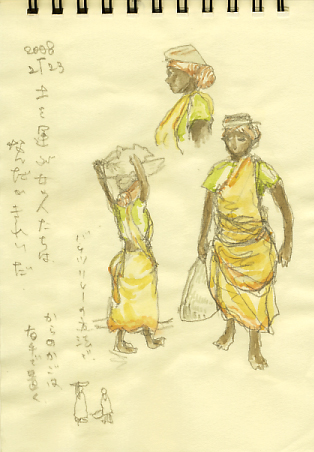 2008
2/23
土を運ぶ女の人たちは、
なんだかきれいだ
バケツリレーの方法で、
からのかごは
右手で置く